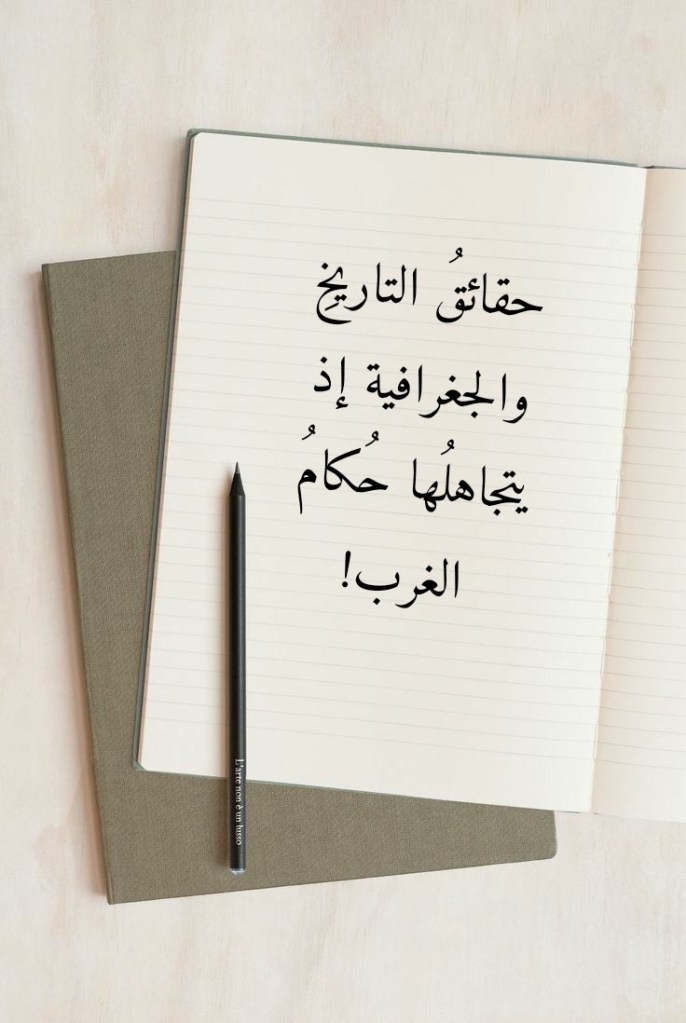 حقائقُ التاريخِ
والجغرافية إذ
يتجاهلُها حُكامُ
الغرب!
L'arte non è un lusso